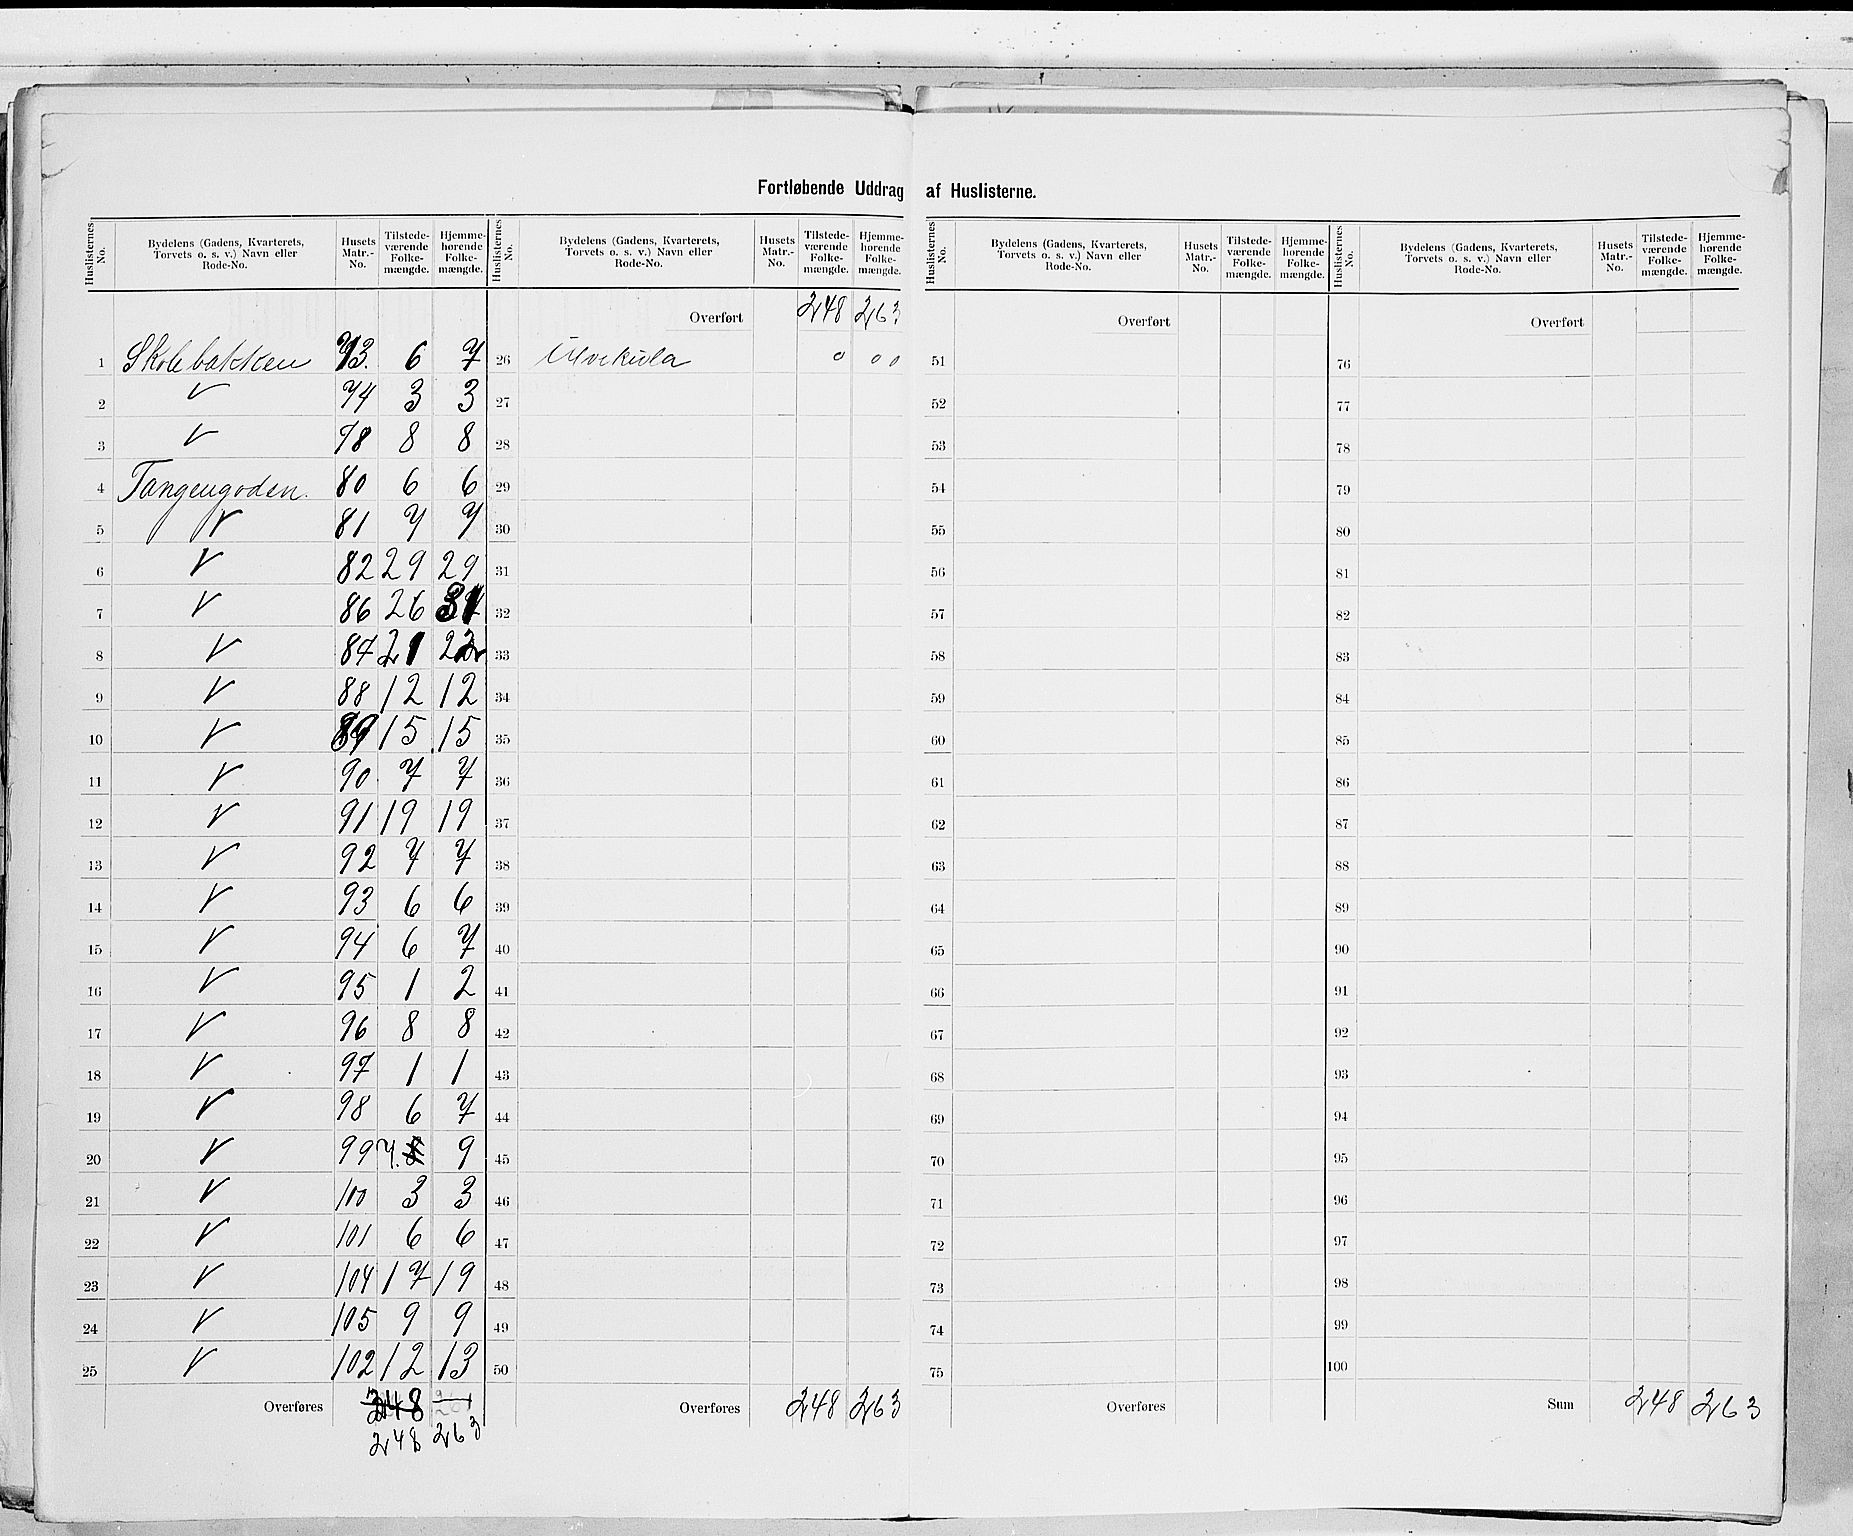 Fortløbende Uddrag af Huslisterne.
Huslisternes No. | Bydelens (Gadens, Kvarterets, Torvets o. s. v.) Navn eller Rode-No. | Husets Matr.-No. | Tilstedeværende Folkemængde. | Hjemmehørende Folkemængde.
1 Skolebakken 73. 6 7
2 V 74 3 3
3 V 78 8 8
4 Tangengaden. 80 6 6
5 V 81 7 7
6 V 82 29 29
7 V 86 26 31
8 V 87 21 22
9 V 88 12 12
10 V 89 15 15
11 V 90 7 7
12 V 91 19 19
13 V 92 7 7
14 V 93 6 6
15 V 94 6 7
16 V 95 1 2
17 V 96 8 8
18 V 97 1 1
19 V 98 6 7
20 V 99 7. 8 9
21 V 100 3 3
22 V 101 6 6
23 V 104 17 19
24 V 105 9 9
25 V 102 12 13
Overføres 248
248 263
Huslisternes No. | Bydelens (Gadens, Kvarterets, Torvets o. s. v.) Navn eller Rode-No. | Husets Matr.-No. | Tilstedeværende Folkemængde. | Hjemmehørende Folkemængde.
Overført 248 263
26 Ulvekula 0 0 0
27
28
29
30
31
32
33
34
35
36
37
38
39
40
41
42
43
44
45
46
47
48
49
50
Overføres 248 263
Huslisternes No. | Bydelens (Gadens, Kvarterets, Torvets o. s. v.) Navn eller Rode-No. | Husets Matr.-No. | Tilstedeværende Folkemængde. | Hjemmehørende Folkemængde.
Overført
51
52
53
54
55
56
57
58
59
60
61
62
63
64
65
66
67
68
69
70
71
72
73
74
75
Overføres
Huslisternes No. | Bydelens (Gadens, Kvarterets, Torvets o. s. v.) Navn eller Rode-No. | Husets Matr.-No. | Tilstedeværende Folkemængde. | Hjemmehørende Folkemængde.
Overført
76
77
78
79
80
81
82
83
84
85
86
87
88
89
90
91
92
93
94
95
96
97
98
99
100
Sum 248 263